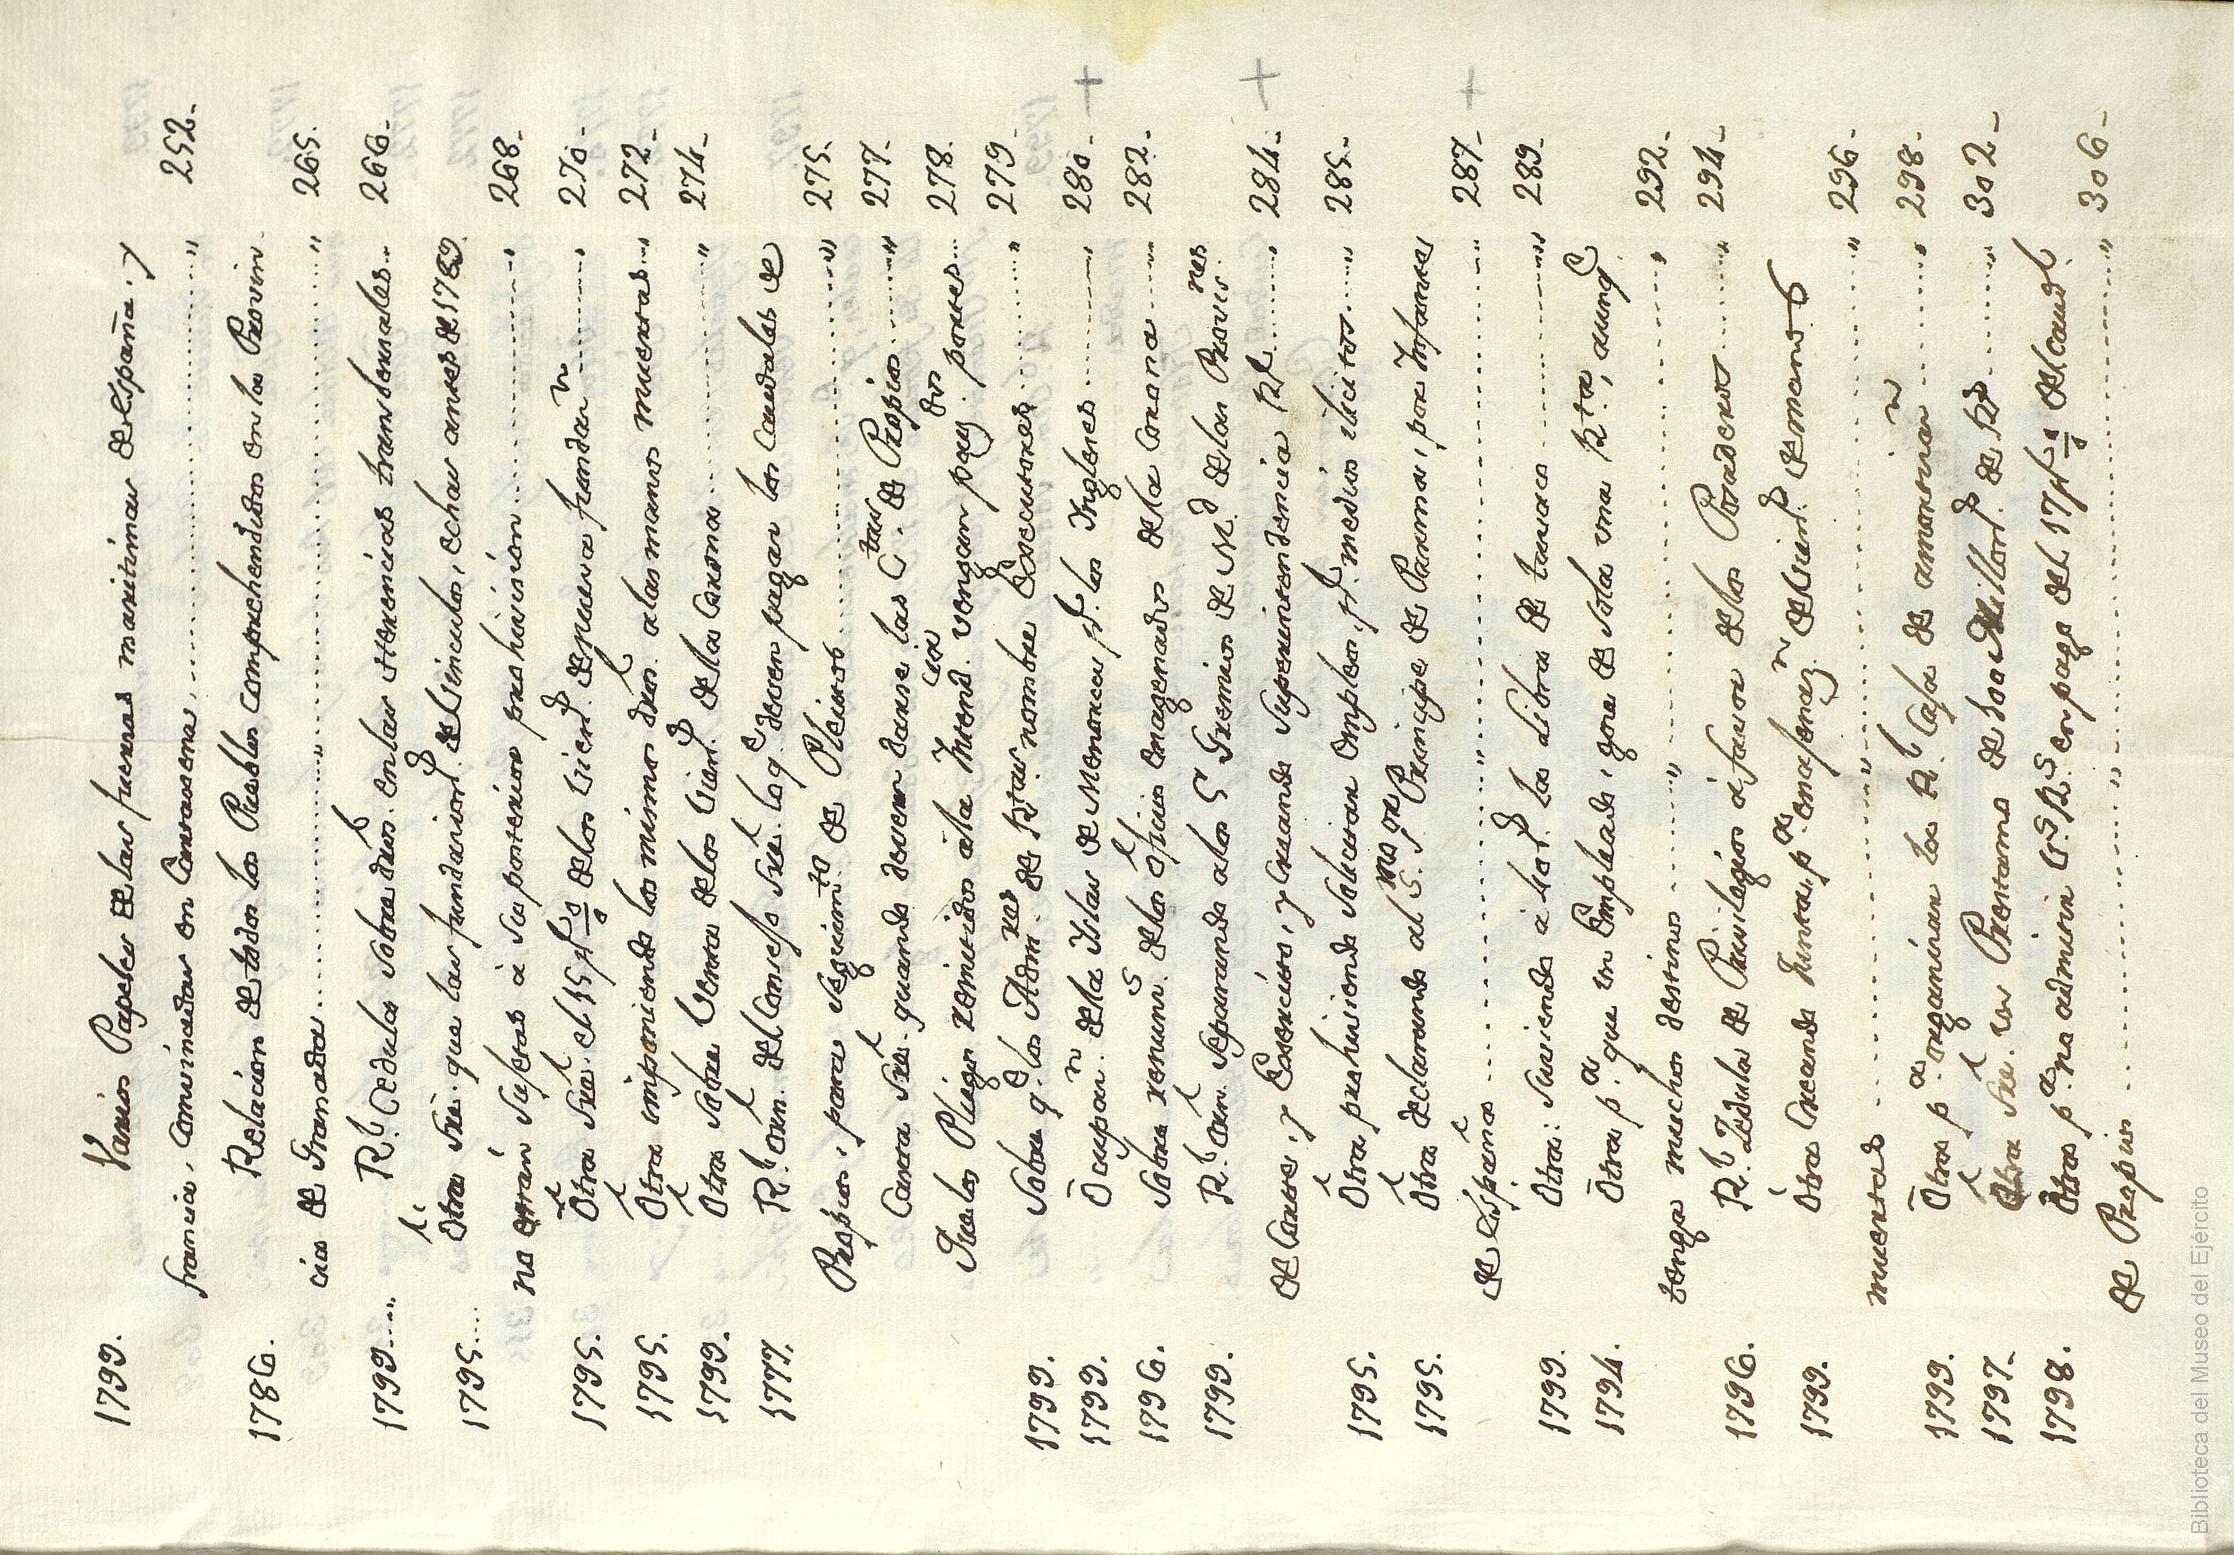 1799. Varios Papeles de las fuerzas maritimas de España, y
francia, Convinadas en Cartagena ........ " 252-
1786. Relacion de todos los Pueblos comprehendidos en la Provin-
cia de Granada ........ " ........ " 265.
1799.... Rl. Cedula sobre dros. en las Herencias transbersales.. 266-
1795.... Otra sre. que las fundacions. de Vinculos, echas antes de 1789
no están sujetas à su posterior prohivicion ........ 268-
1795. Otra sre. el 15 p% de los vienes. de nueva fundan. ........ 270-
1795. Otra imponiendo los mismos dros. a las manos muertas.... 272-
1799. Otra sobre Ventas de los vienes. de la Corona ........ " 274-
1777. Rl. orn. del Consejo sre. lo qe. deven pagar los Caudales de
Propios, para seguimto. de Pleitos ........ " 275.
Carta sre. quando deven darse las Ctas. de Propios ........ " 277-
Sre. los Pliegos remitidos a la Intenda. vengan pagdos. portes... 278.
1799. Sobre qe. los Admres. de Rtas. nombre Executores ........ " 279-
1799. Ocupan. de la Isla de Menorca pr. los Ingleses ........ 280- +
1796. Sobre renuns. de los oficios enagenados de la Corona ...... 282-
1799. Rl. orn. separando a los 5 Gremios de Md. de las Provisnes.
de Carne, y Exercito, y Creando Superintendencia Rl. ........ 284- +
1795. Otra prohiviendo solicitar empleos, pr. medios ilicitos ...... 285-
1795. Otra declarando al S.mo Sor. Principe de Parma, por Infante
de España ........ " ........ " 287- +
1799. Otra: Suviendo a los Libros de tavaco ........ " 289-
1794. Otra pa. que un Empleado, goze de sola una Rta., aunqe.
tenga muchos destinos ........ " ........ " 292-
1796. Rl. Zedula de Privilegios á favor de los Posaderos .... " 294-
1799. Otra Creando Juntas, pa. enagenazn. de vienes. de manos
muertas ........ " ........ " 296-
1799. Otras pa. organizar los Rl. Caja de amortizn. ........ " 298-
1797. Otra sre. un Prestamo de 100 Millons. de Rs. ........ " 302-
1798. Otras pa. no admitir Vs. Rs. en pago del 17 p% del caudl.
de Propios ........ " ........ " 306-
Biblioteca del Museo del Ejército